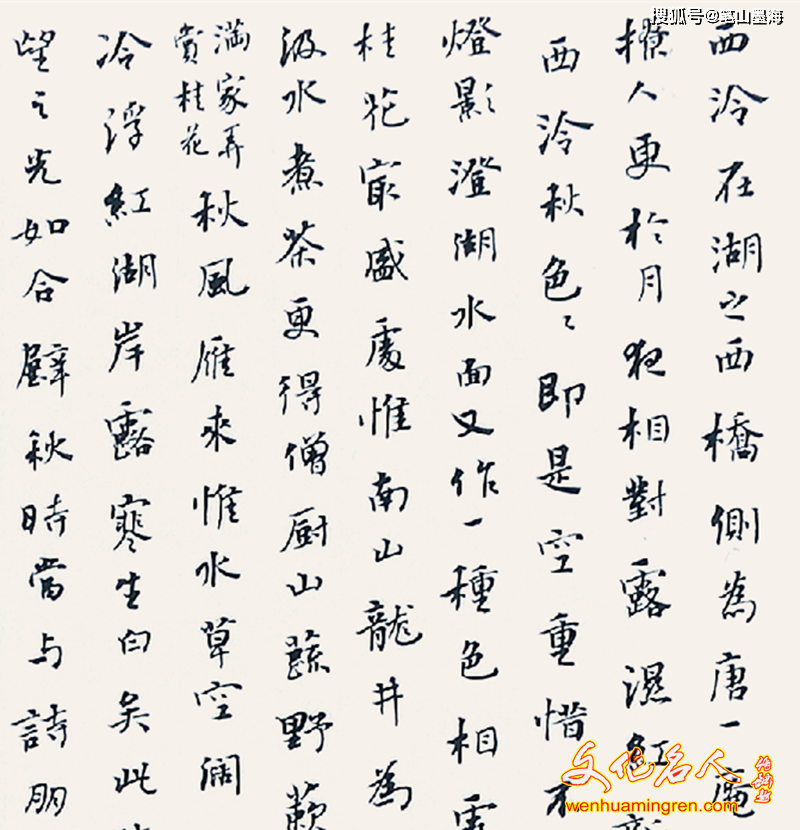 搜狐号@笔山墨海
西泠在湖之西橋側為唐一庵
撩人更於月夜相對露濕紅
西泠秋色々即是空重惜不
燈影澄湖水面又作一種色相
桂花最盛處惟南山龍井為
汲水煮茶更得僧厨山蔬野蔌
滿家弄
賞桂花
秋風雁來惟水草空闊
冷浮紅湖岸露寒生白矣此
望之光如合璧秋時當与詩朋
文化名人
wenhuamingren.com